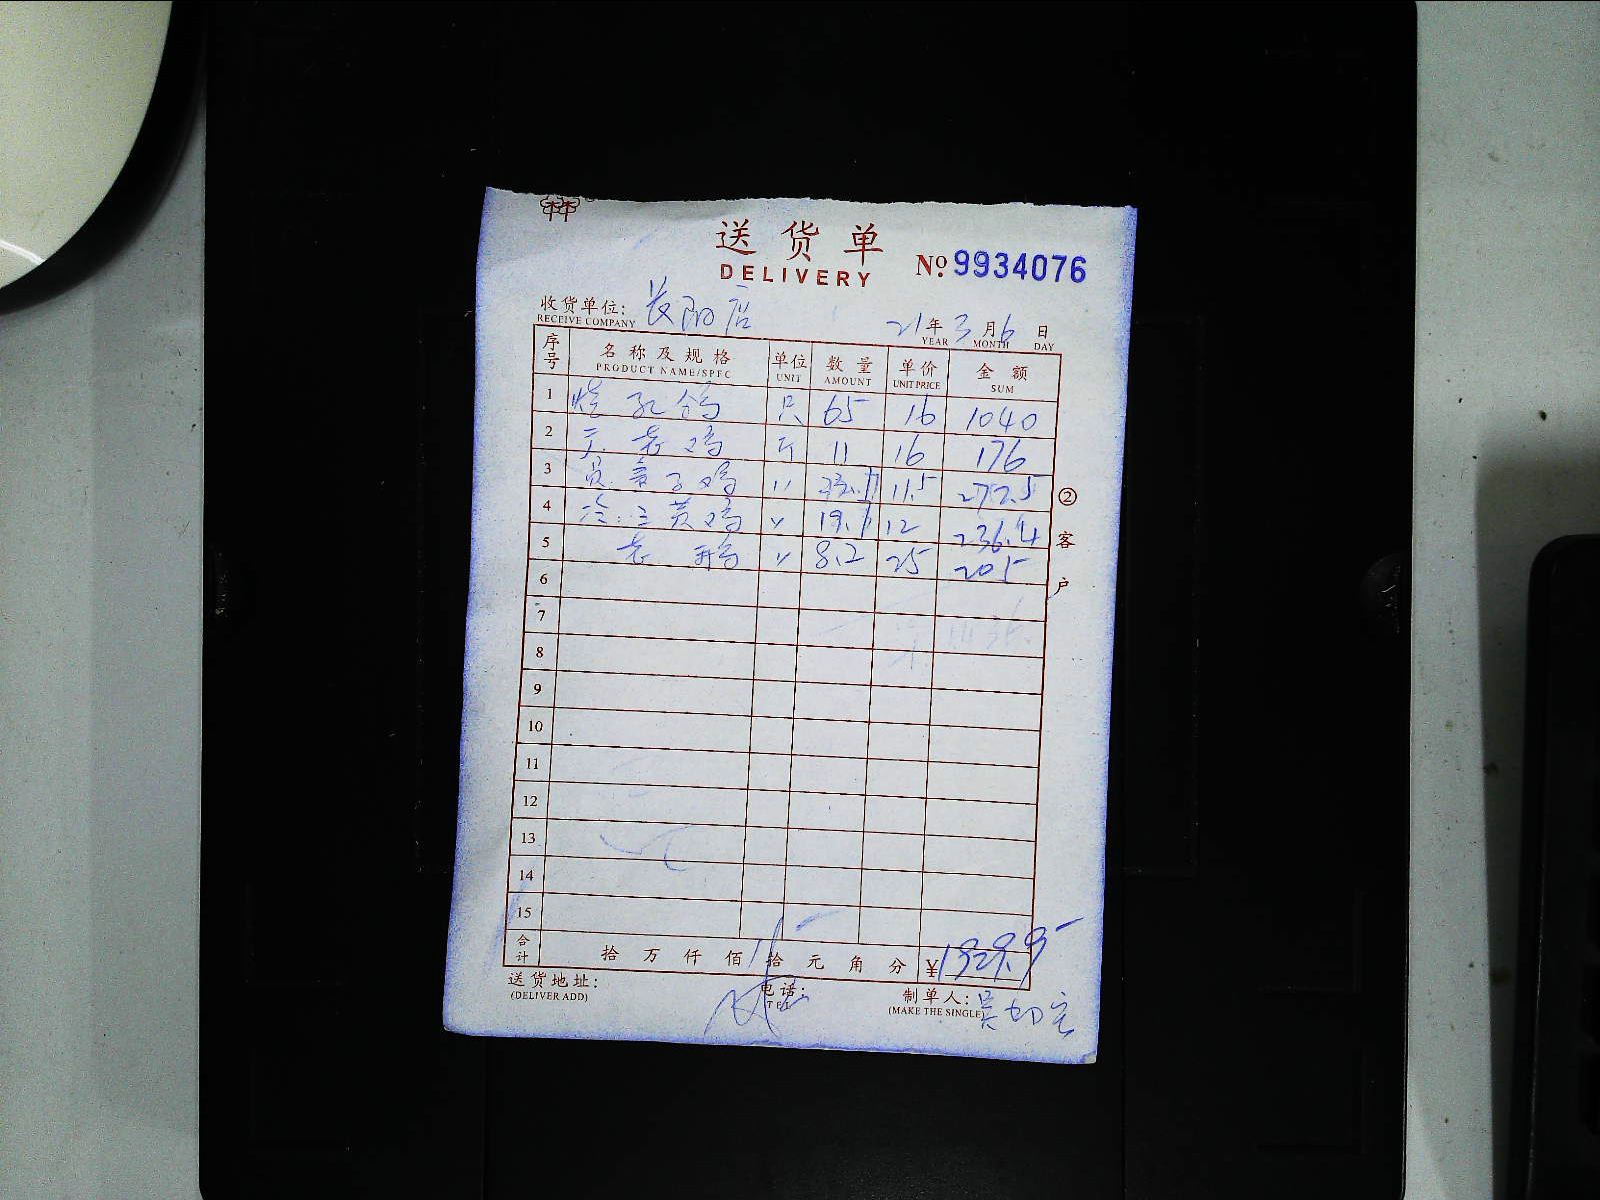 送货单
DELIVERY
No. 9934076
收货单位: 长阳店
RECEIVE COMPANY
21年3月6日
YEAR MONTH DAY
序号 名称及规格 单位 数量 单价 金额
PRODUCT NAME/SPFC UNIT AMOUNT UNIT PRICE SUM
1 烧 乳鸽 只 65 16 1040
2 老鸡 斤 11 16 176
3 子鸡 〃 11.5
4 冷 三黄鸡 〃 12 236.4
5 老 鸭 〃 8.2 25 205
6
7
8
9
10
11
12
13
14
15
合计 拾 万 仟 佰 拾 元 角 分 ¥
② 客户
送货地址: 电话: 制单人:
(DELIVER ADD) TEL (MAKE THE SINGLE)